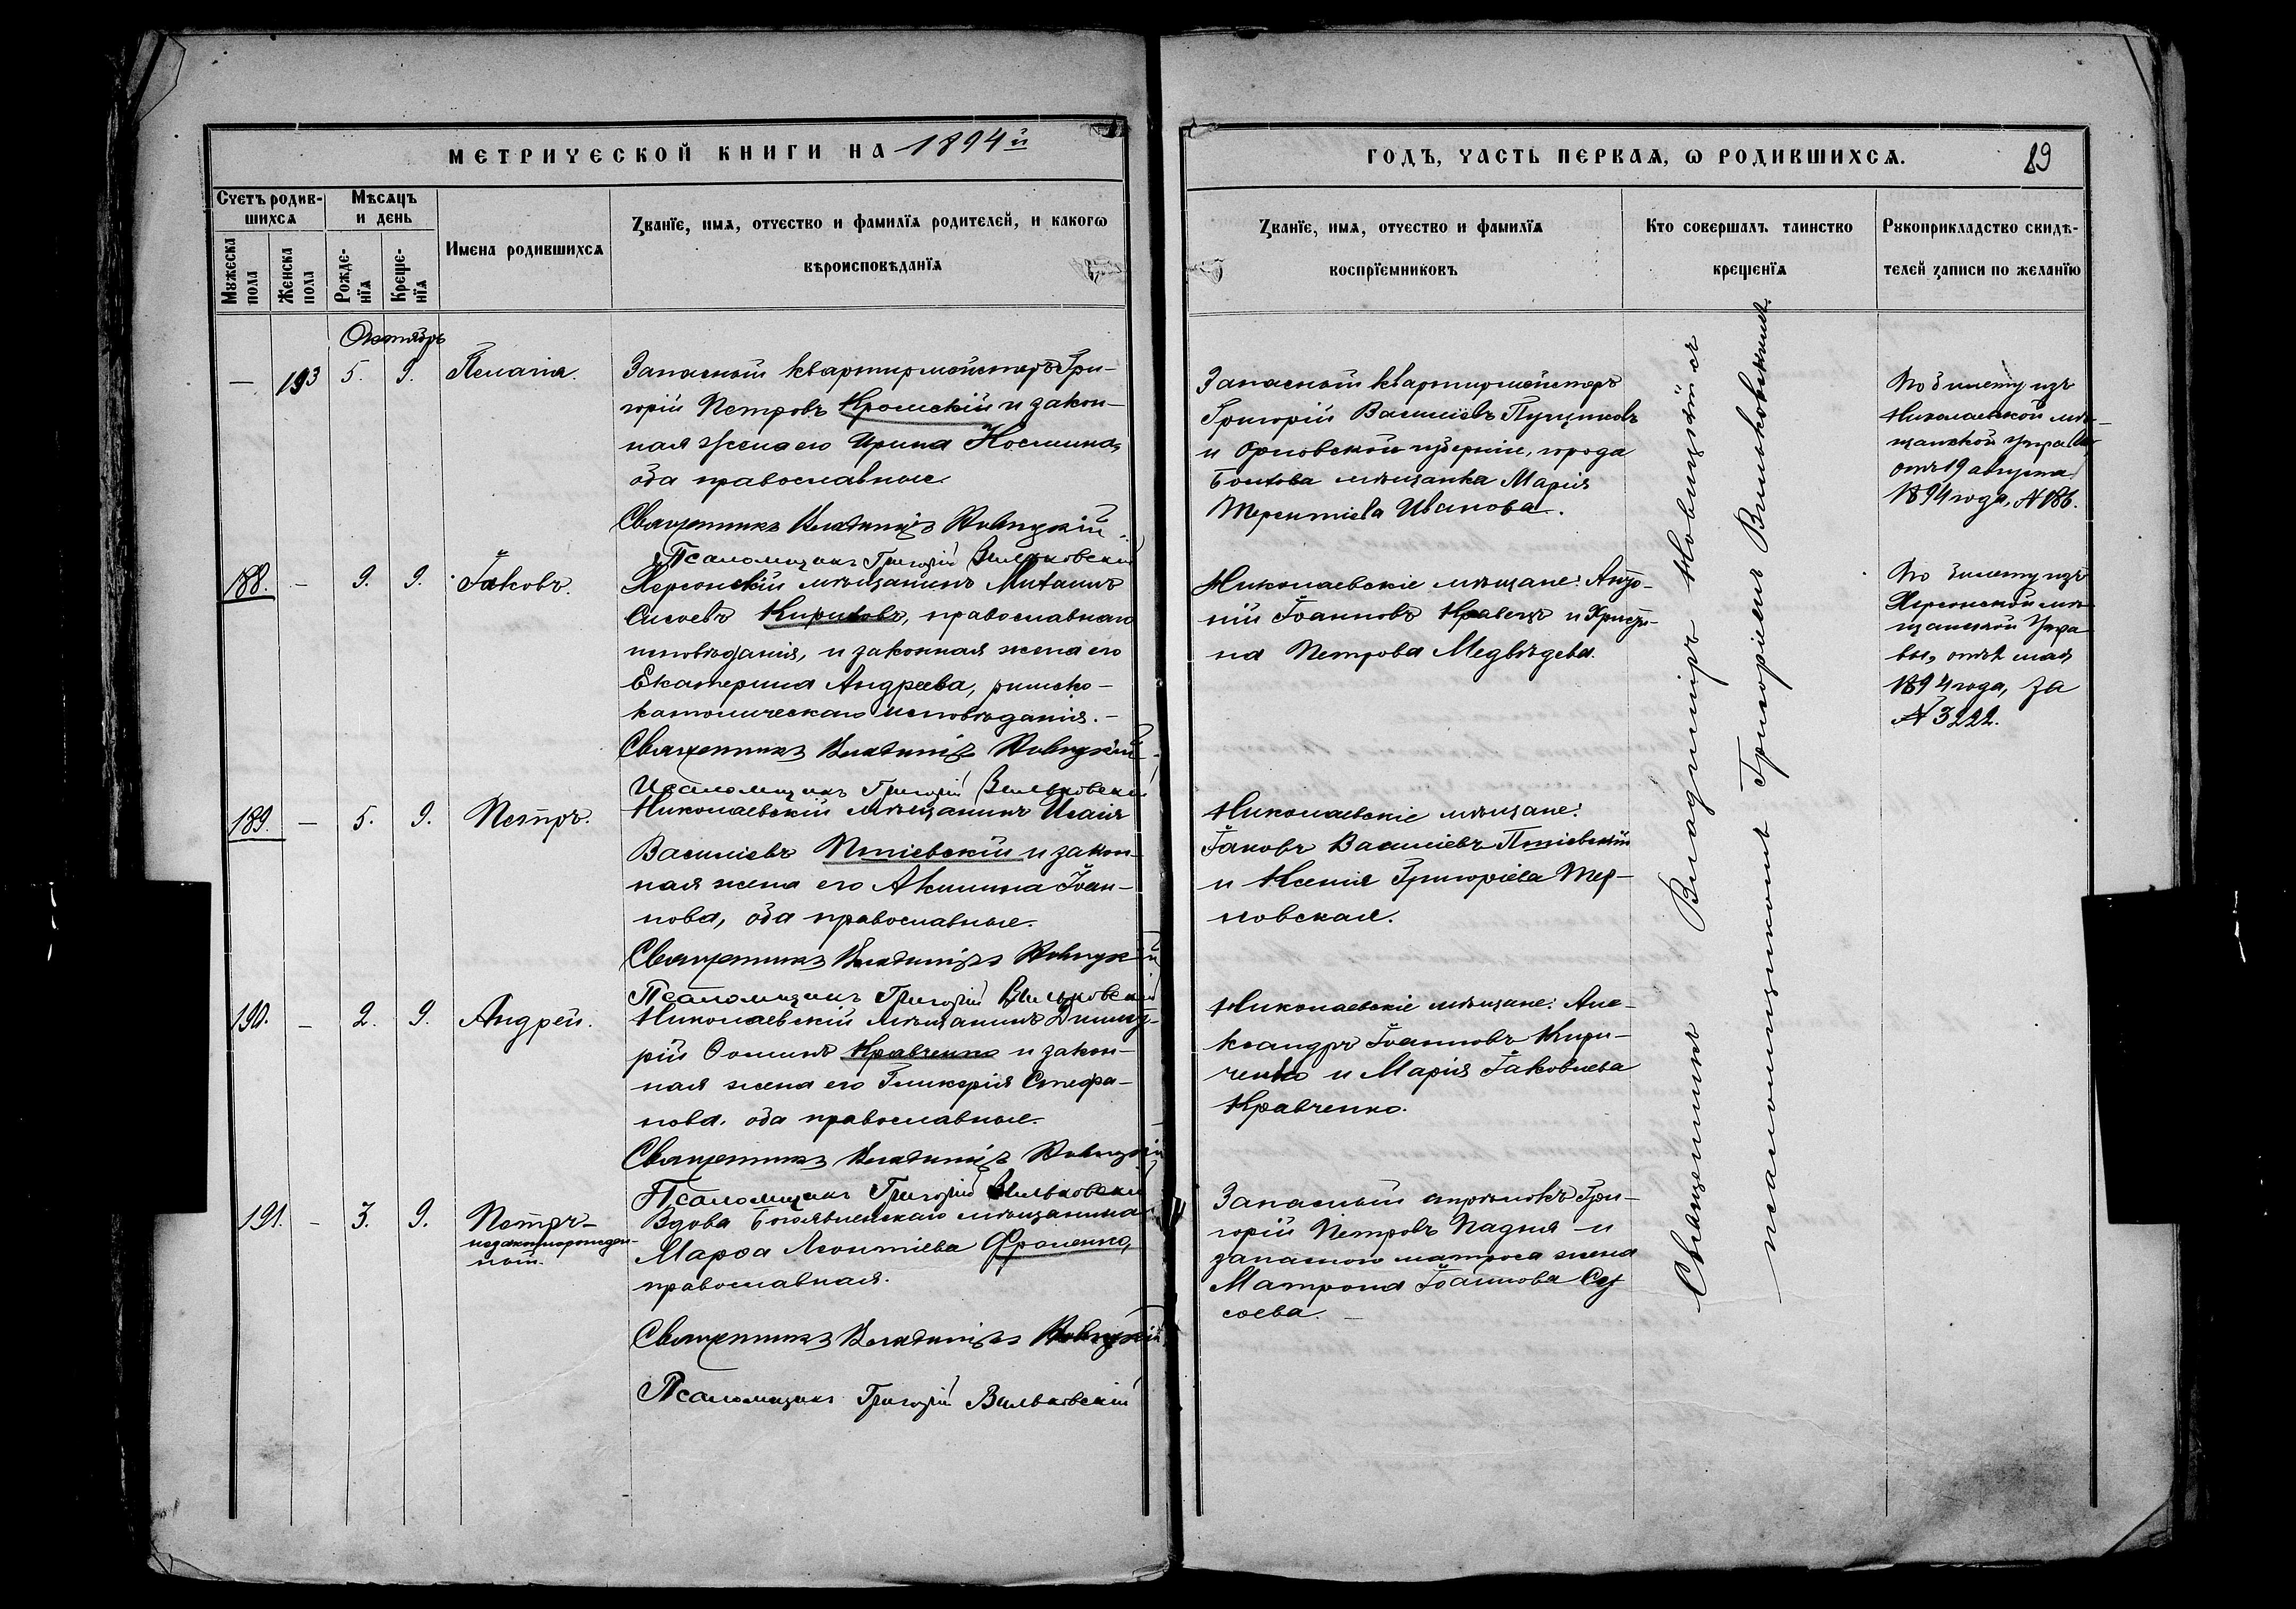 МЕТРИЧЕСКОЙ КНИГИ НА 1894й
ГОДЪ, ЧАСТЬ ПЕРВАѦ, Ѡ РОДИВШИХСѦ.
89
Счетъ родив-
шихсѧ
Мѣсѧцъ
и день
Мужеска
пола
Женска
пола
Рожде-
нїѧ
Креще-
нїѧ
Имена родившихсѧ
Званїе, имѧ, отчество и фамилїѧ родителей, и какогѡ
вѣроисповѣданїѧ
Званїе, имѧ, отчество и фамилїѧ
воспрїемниковъ
Кто совершалъ таинство
крещенїѧ
Рукоприкладство свидѣ-
телей записи по желанїю
Октябрь
— 193 5. 9. Пелагія.
Запасный квартирмейстеръ Гри-
горій Петровъ Кромскій и закон-
ная жена его Ирина Космина,
оба православные.
Священникъ Владиміръ Новицкій
Псаломщикъ Григорій Вильковскій
Запасный квартирмейстеръ
Григорій Василіевъ
и Орловской губерніи, города
Болхова мѣщанка Марія
Терентіева Иванова.
По билету изъ
Николаевской мѣ-
щанской Управы
отъ 19 августа
1894 года, № 186.
188. — 9. 9. Іаковъ.
Херсонскій мѣщанинъ Михаилъ
Сисоевъ Кириковъ, православнаго
исповѣданія, и законная жена его
Екатерина Андреева, римско-
католическаго исповѣданія. —
Священникъ Владиміръ Новицкій
Псаломщикъ Григорій Вильковскій
Николаевскіе мѣщане: Анто-
ній Іоанновъ Кравецъ и Христи-
на Петрова Медвѣдева.
По билету изъ
Херсонской мѣ-
щанской Упра-
вы, отъ мая
1894 года, за
№ 3222.
189. — 5. 9. Петръ.
Николаевскій мѣщанинъ Исаія
Василіевъ Потіевскій и закон-
ная жена его Акилина Іоан-
нова, оба православные.
Священникъ Владиміръ Новицкій
Псаломщикъ Григорій Вильковскій
Николаевскіе мѣщане:
Іаковъ Василіевъ Потіевскій
и Ксенія Григоріева Тер-
новская.
190. — 2. 9. Андрей.
Николаевскій мѣщанинъ Димит-
рій Ѳоминъ Кравченко и закон-
ная жена его Гликерія Стефа-
нова, оба православные.
Священникъ Владиміръ Новицкій
Псаломщикъ Григорій Вильковскій
Николаевскіе мѣщане: Але-
ксандръ Іоанновъ Кири-
ченко и Марія Іаковлева
Кравченко.
191. — 3. 9. Петръ —
незаконнорожден-
ный.
Вдова Богоявленскаго мѣщанина
Марѳа Леонтіева Фроленко,
православная.
Священникъ Владиміръ Новицкій
Псаломщикъ Григорій Вильковскій
Запасный стрѣлокъ Гри-
горій Петровъ Падня и
запасного матроса жена
Матрона Іоаннова Сы-
соева. —
Священникъ Владиміръ Новицкій съ
псаломщикомъ Григоріемъ Вильковскимъ.